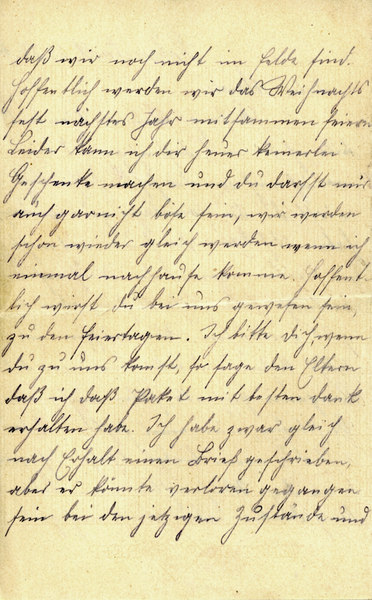 daß wir noch nicht im Felde sind.
Hoffentlich werden wir das Weihnachts
fest nächstes Jahr mitsammen feiern
Leider kann ich dir heuer keinerlei
Geschenke machen und du darfst mir
auch garnicht böse sein, wir werden
schon wieder gleich werden wenn ich
einmal nachhause komme. Hoffent-
lich wirst du bei uns gewesen sein,
zu den Feiertagen. Ich bitte dich wenn
du zu uns komst, so sage den Eltern
daß ich daß Paket mit besten dank
erhalten habe. Ich habe zwar gleich
nach Erhalt einen Brief geschrieben,
aber er könnte verloren gegangen
sein bei den jetzigen Zustände und